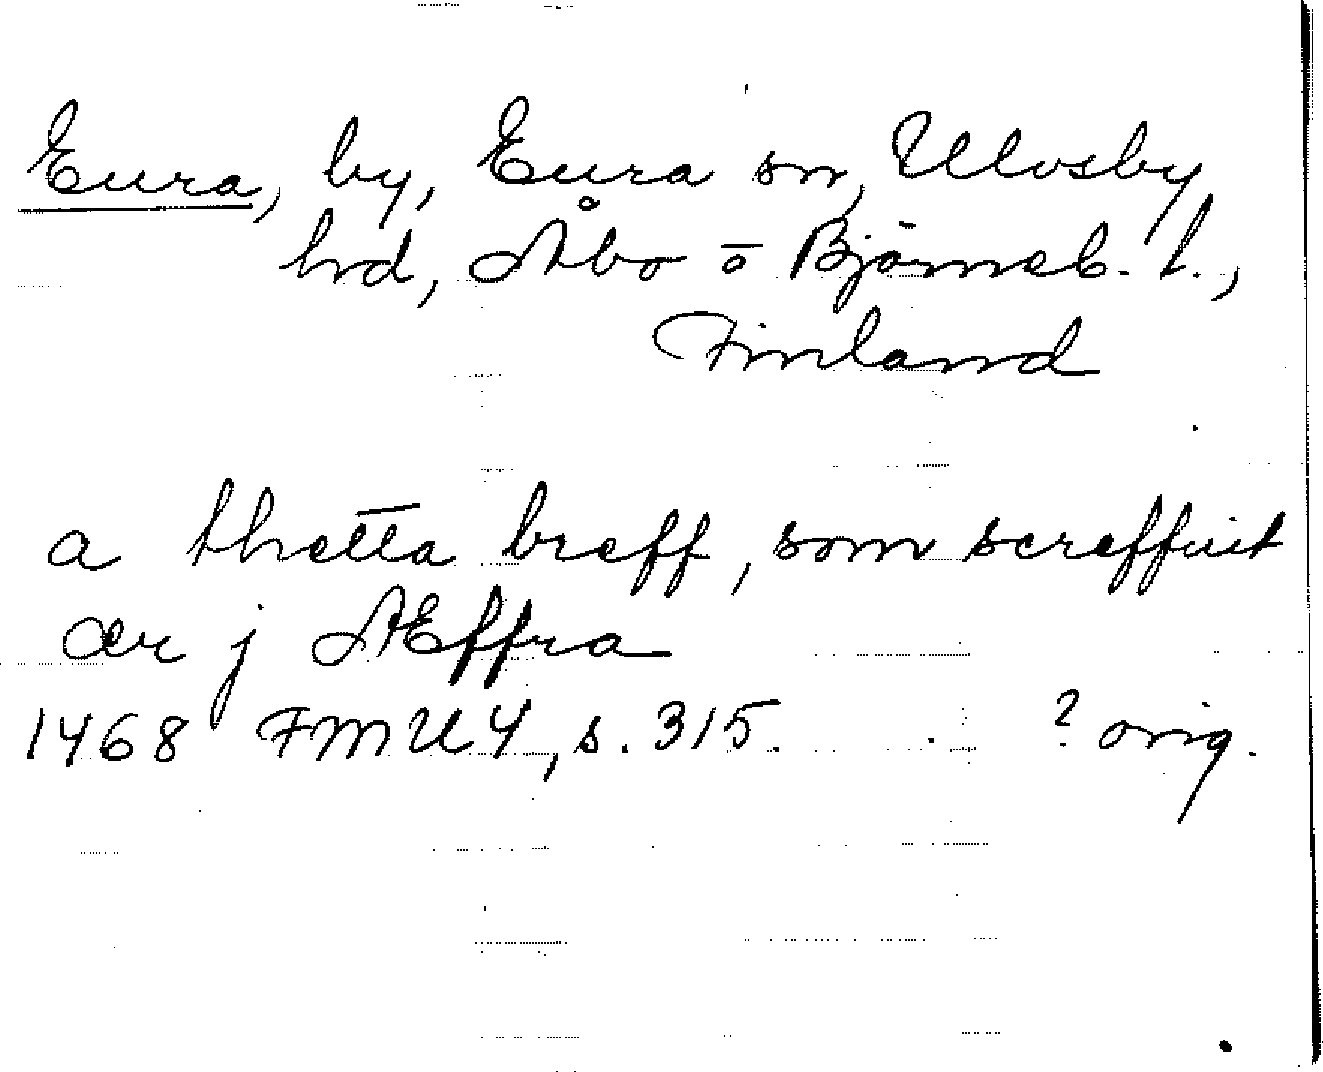 Eura, by, Eura sn, Ulvsby
hrd, Åbo o Björneb. l.,
Finland
a thetta breff, som screffuit
ær j Æffra
1468 FMU 4, s. 315. ? orig.